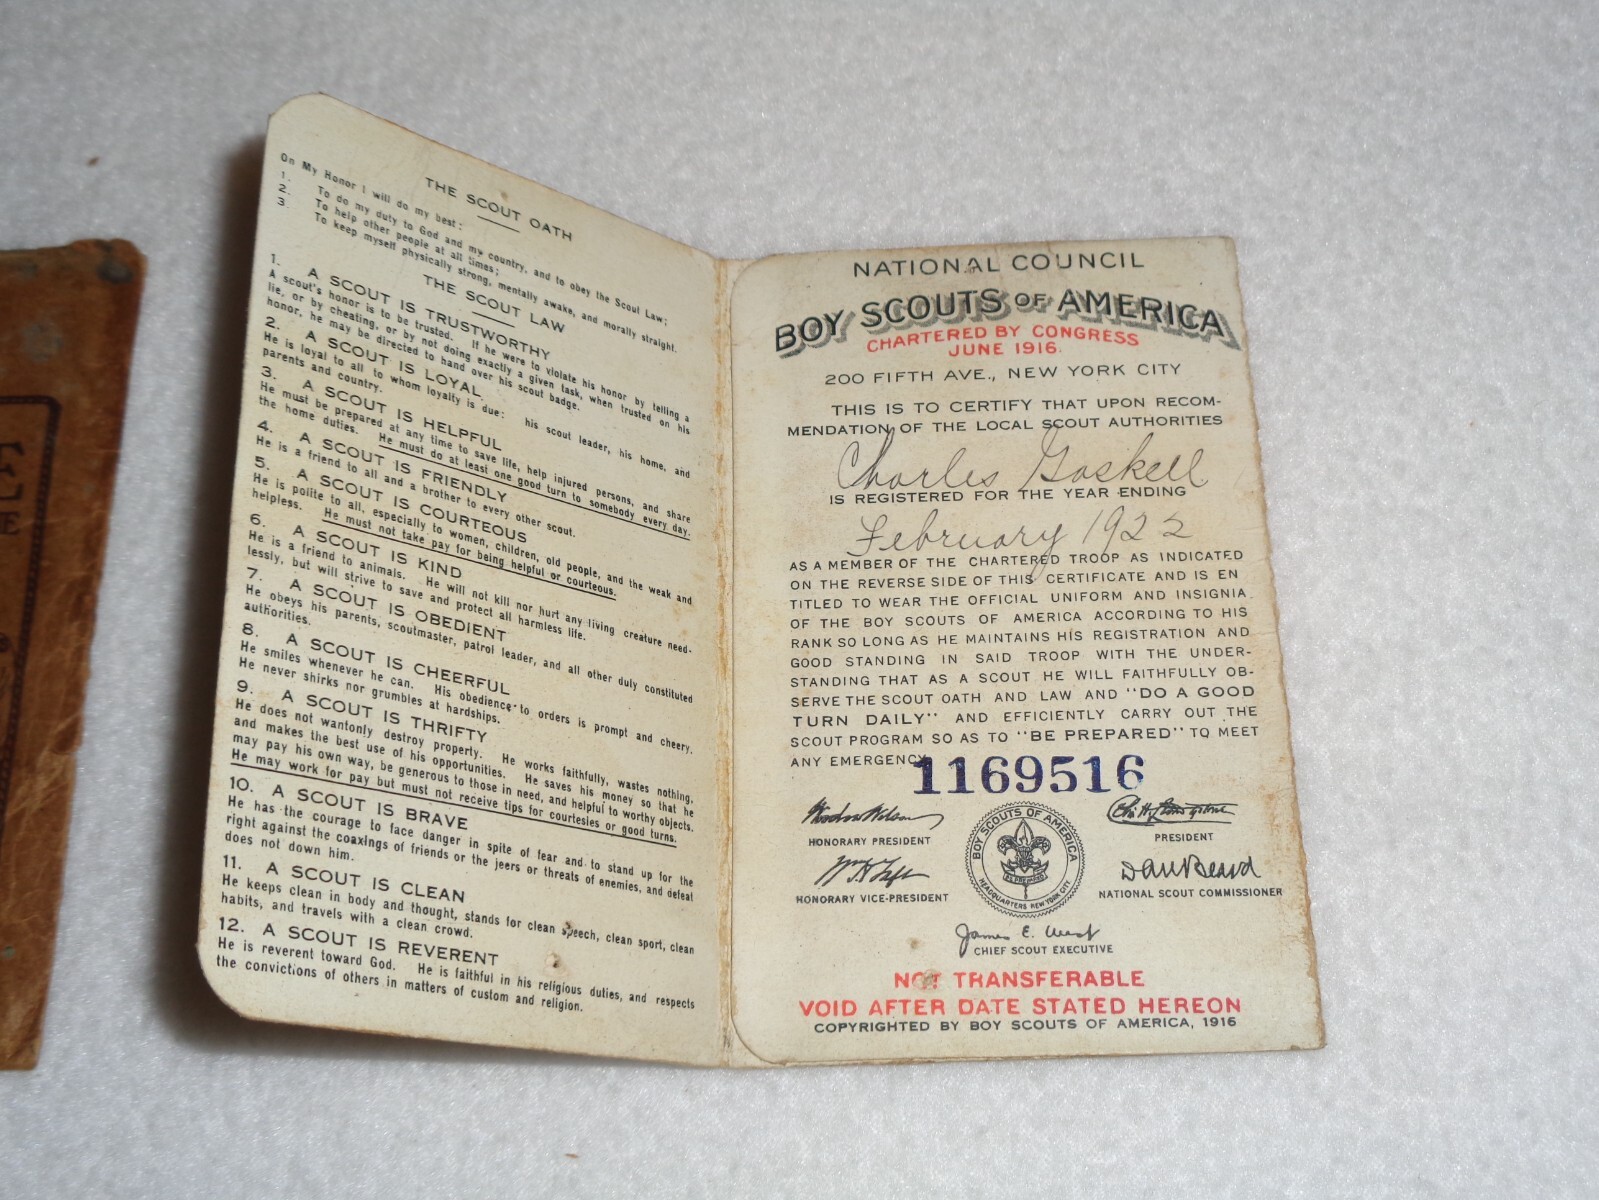 THE SCOUT OATH
On My Honor I will do my best:
1. To do my duty to God and my country, and to obey the Scout Law;
2. To help other people at all times;
3. To keep myself physically strong, mentally awake, and morally straight.
THE SCOUT LAW
1. A SCOUT IS TRUSTWORTHY
A scout's honor is to be trusted. If he were to violate his honor by telling a
lie, or by cheating, or by not doing exactly a given task, when trusted on his
honor, he may be directed to hand over his scout badge.
2. A SCOUT IS LOYAL
He is loyal to all to whom loyalty is due: his scout leader, his home, and
parents and country.
3. A SCOUT IS HELPFUL
He must be prepared at any time to save life, help injured persons, and share
the home duties. He must do at least one good turn to somebody every day.
4. A SCOUT IS FRIENDLY
He is a friend to all and a brother to every other scout.
5. A SCOUT IS COURTEOUS
He is polite to all, especially to women, children, old people, and the weak and
helpless. He must not take pay for being helpful or courteous.
6. A SCOUT IS KIND
He is a friend to animals. He will not kill nor hurt any living creature need-
lessly, but will strive to save and protect all harmless life.
7. A SCOUT IS OBEDIENT
He obeys his parents, scoutmaster, patrol leader, and all other duly constituted
authorities.
8. A SCOUT IS CHEERFUL
He smiles whenever he can. His obedience to orders is prompt and cheery.
He never shirks nor grumbles at hardships.
9. A SCOUT IS THRIFTY
He does not wantonly destroy property. He works faithfully, wastes nothing,
and makes the best use of his opportunities. He saves his money so that he
may pay his own way, be generous to those in need, and helpful to worthy objects.
He may work for pay but must not receive tips for courtesies or good turns.
10. A SCOUT IS BRAVE
He has the courage to face danger in spite of fear and to stand up for the
right against the coaxings of friends or the jeers or threats of enemies, and defeat
does not down him.
11. A SCOUT IS CLEAN
He keeps clean in body and thought, stands for clean speech, clean sport, clean
habits, and travels with a clean crowd.
12. A SCOUT IS REVERENT
He is reverent toward God. He is faithful in his religious duties, and respects
the convictions of others in matters of custom and religion.
NATIONAL COUNCIL
BOY SCOUTS OF AMERICA
CHARTERED BY CONGRESS
JUNE 1916.
200 FIFTH AVE., NEW YORK CITY
THIS IS TO CERTIFY THAT UPON RECOM-
MENDATION OF THE LOCAL SCOUT AUTHORITIES
Charles Gaskell
IS REGISTERED FOR THE YEAR ENDING
February 1922
AS A MEMBER OF THE CHARTERED TROOP AS INDICATED
ON THE REVERSE SIDE OF THIS CERTIFICATE AND IS EN
TITLED TO WEAR THE OFFICIAL UNIFORM AND INSIGNIA
OF THE BOY SCOUTS OF AMERICA ACCORDING TO HIS
RANK SO LONG AS HE MAINTAINS HIS REGISTRATION AND
GOOD STANDING IN SAID TROOP WITH THE UNDER-
STANDING THAT AS A SCOUT HE WILL FAITHFULLY OB-
SERVE THE SCOUT OATH AND LAW AND "DO A GOOD
TURN DAILY" AND EFFICIENTLY CARRY OUT THE
SCOUT PROGRAM SO AS TO "BE PREPARED" TO MEET
ANY EMERGENCY
1169516
Woodrow Wilson
HONORARY PRESIDENT
Wm H Taft
HONORARY VICE-PRESIDENT
BOY SCOUTS OF AMERICA
BE PREPARED
HEADQUARTERS NEW YORK CITY
PRESIDENT
Dan Beard
NATIONAL SCOUT COMMISSIONER
James E. West
CHIEF SCOUT EXECUTIVE
NOT TRANSFERABLE
VOID AFTER DATE STATED HEREON
COPYRIGHTED BY BOY SCOUTS OF AMERICA, 1916